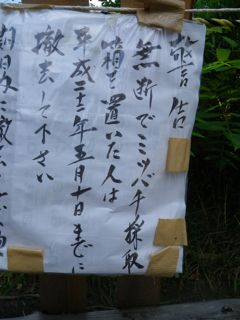 警告
無断でミツバチ採取
箱を置いた人は
平成二十二年五月十日までに
撤去して下さい
期日